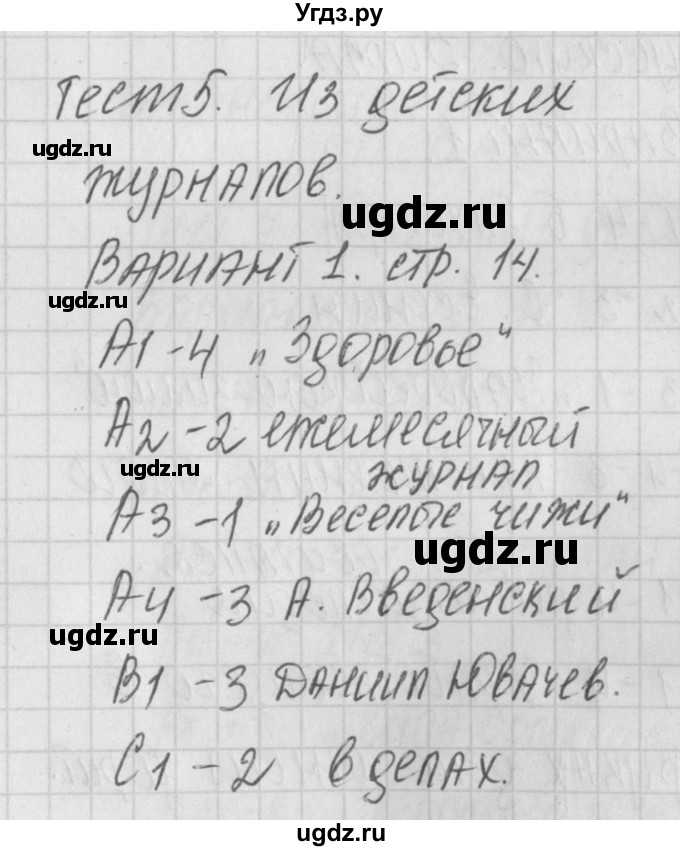 Угдз.ру
Тест 5. Из детских
ugdz.ru
журналов.
ugdz.ru
Вариант 1. стр. 14.
ugdz.ru
А1 - 4 „Здоровье“
А2 - 2 ежемесячный
журнал
ugdz.ru
А3 - 1 „Веселые чижи“
ugdz.ru
А4 - 3 А. Введенский
ugdz.ru
В1 - 3 Даниил Ювачев.
С1 - 2 в делах.
ugdz.ru
ugdz.ru